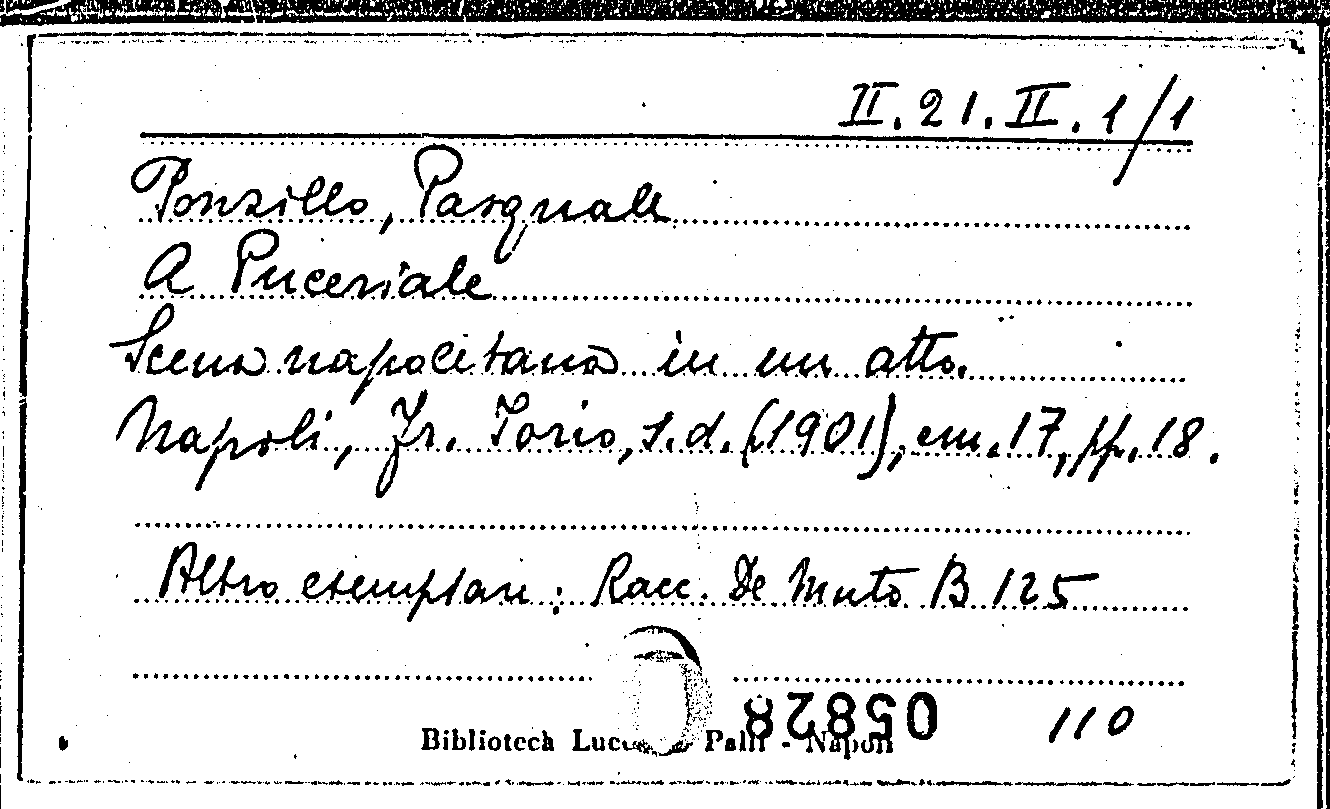 II. 21. II. 1/1
Ponzillo, Pasquale
A Puceriale
Scena napoletana in un atto.
Napoli, Fr. Iorio, s.d. (1901), cm. 17, pp. 18.
Altro esemplare: Racc. De Muto B 125
05828
110
Biblioteca Lucchesi Palli - Napoli